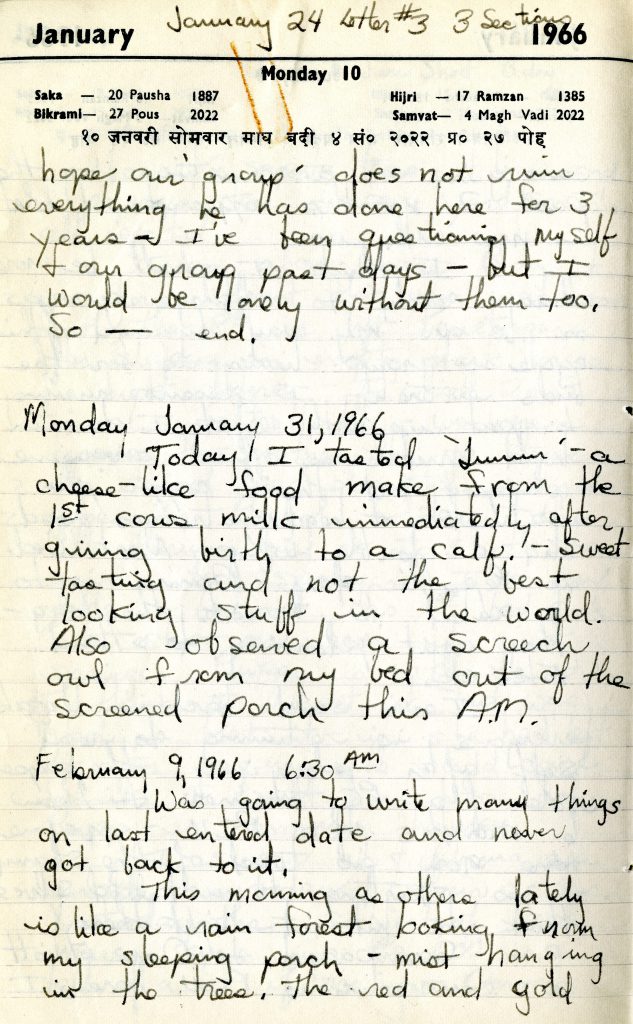 January 24 Letter #3 3 Sections
January 1966
Monday 10
Saka — 20 Pausha 1887 Hijri — 17 Ramzan 1385
Bikrami — 27 Pous 2022 Samvat — 4 Magh Vadi 2022
१० जनवरी सोमवार माघ बदी ४ सं० २०२२ प्र० २७ पोह
hope our 'group' does not ruin
everything he has done here for 3
years — I've been questioning myself
+ our group past days — but I
would be lonely without them too.
So — end.
Monday January 31, 1966
Today I tasted — a
cheese-like food make from the
1st cows milk immediatedly after
giving birth to a calf. — Sweet
tasting and not the best
looking stuff in the world.
Also observed a screech
owl from my bed out of the
screened porch this A.M.
February 9, 1966 6:30 AM
Was going to write many things
on last entered date and never
got back to it.
This morning as others lately
is like a rain forest looking from
my sleeping porch — mist hanging
in the trees. The red and gold